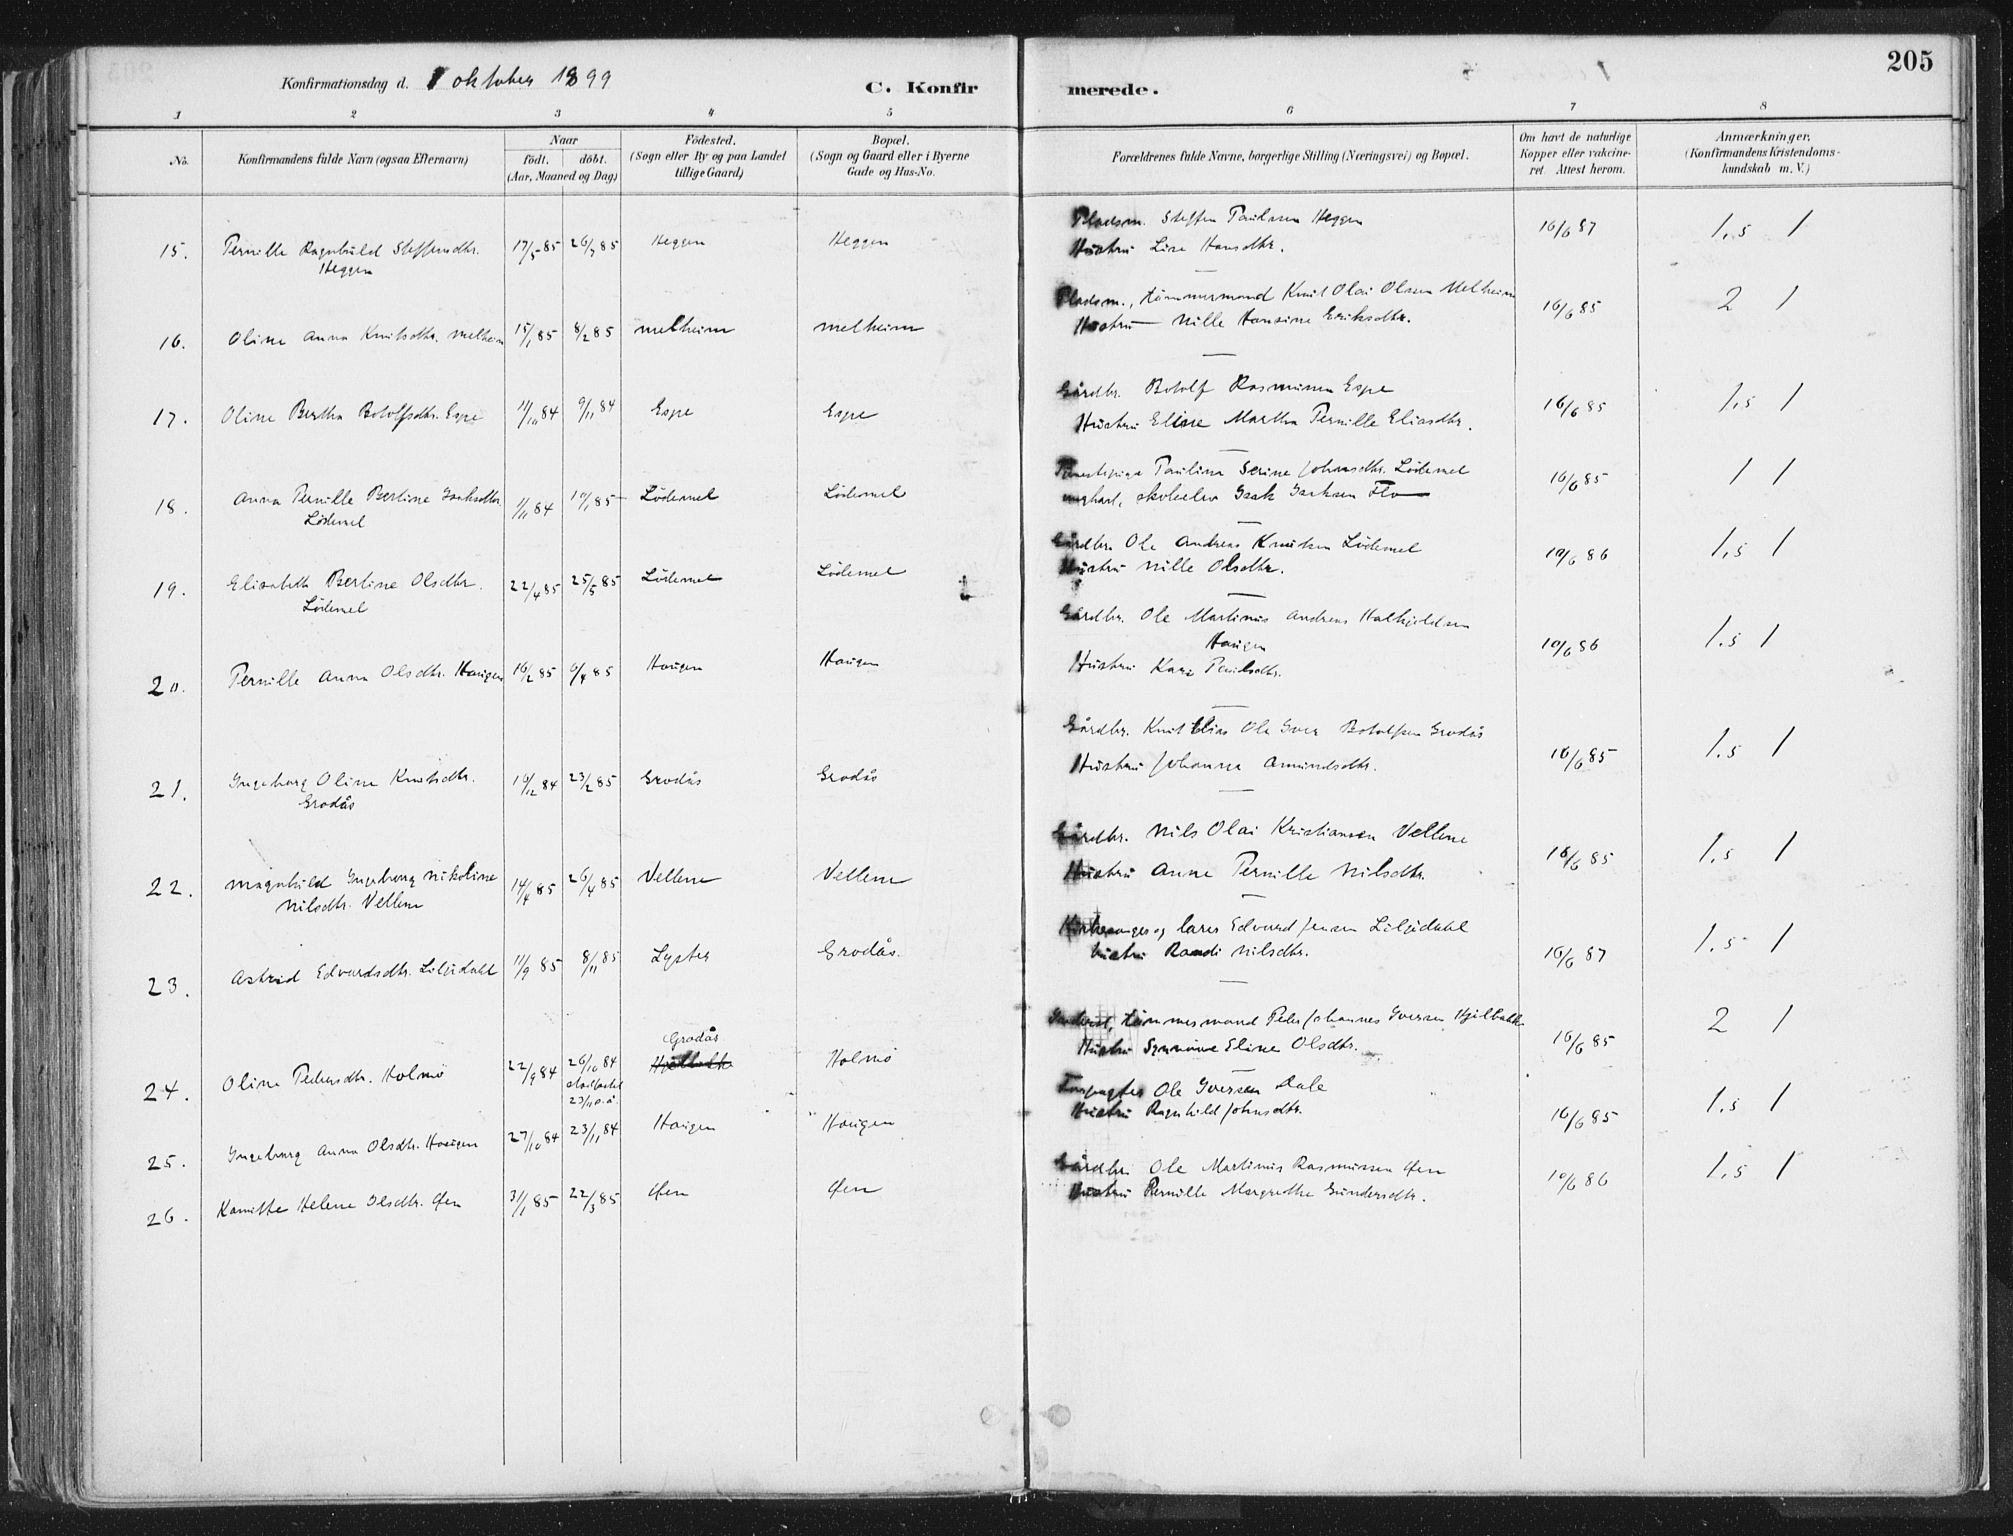 205
Konfirmationsdag d. 1 oktober 1899
C. Konfirmerede.
1 2 3 4 5 6 7 8
No.
Konfirmandens fulde Navn (ogsaa Efternavn)
Naar
födt. döbt.
(Aar, Maaned og Dag)
Födested.
(Sogn eller By og paa Landet
tillige Gaard)
Bopæl.
(Sogn og Gaard eller i Byerne
Gade og Hus-No.
Forældrenes fulde Navne, borgerlige Stilling (Næringsvei) og Bopæl.
Om havt de naturlige
Kopper eller vakcine-
ret. Attest herom.
Anmærkninger.
(Konfirmandens Kristendoms-
kundskab m. V.)
15. Pernille Ragnhild Steffensdtr. 17/5 85 26/7 85 Heggen Heggen
Heggen
Pladsm. Steffen Paulsen Heggen 16/6 87 1,5 1
Hustru Lise Hansdtr.
16. Oline Anna Knutsdtr. Melheim 15/1 85 8/2 85 Melheim Melheim
Pladsm., tømmermand Knut Olai Olsen Melheim 16/6 85 2 1
Hustru Nille Hansine Eriksdtr.
17. Oline Bertha Botolfsdtr. Espe 11/10 84 9/11 84 Espe Espe
Gårdbr. Botolf Rasmussen Espe 16/6 85 1,5 1
Hustru Eline Martha Pernille Eliasdtr.
18. Anna Pernille Bertine Isaksdtr. 1/11 84 10/1 85 Lödemel Lödemel
Lödemel
Tjenestepige Paulina Serine Johnsdtr. Lödemel 16/6 85 1 1
ungkarl, skoleelev Isak Isaksen Flo
19. Elisabeth Bertine Olsdtr. 22/4 85 25/5 85 Lödemel Lödemel
Lödemel
Gårdbr. Ole Andreas Knutsen Lödemel 10/6 86 1,5 1
Hustru Nille Olsdtr.
20. Pernille Anna Olsdtr. Haugen 16/2 85 6/4 85 Haugen Haugen
Gårdbr. Ole Martinus Andreas Halkjeldsen 10/6 86 1.5 1
Haugen
Hustru Kari Paulsdtr.
21. Ingeborg Oline Knutsdtr. 16/12 84 23/2 85 Grodås Grodås
Grodås
Gårdbr. Knut Elias Ole Iver Botolfsen Grodås 16/6 85 1.5 1
Hustru Johanne Amundsdtr.
22. Magnhild Ingeborg Nikoline 14/4 85 26/4 85 Vellene Vellene
Nilsdtr. Vellene
Gårdbr. Nils Olai Kristiansen Vellene 16/6 85 1,5 1
Hustru Anne Pernille Nilsdtr.
23. Astrid Edvardsdtr. Liljedahl 11/9 85 8/11 85 Lyster Grodås.
Kirkesanger og lærer Edvard Jensen Liljedahl 16/6 87 1.5 1
hustru Randi Nilsdtr.
24. Oline Pedersdtr. Holmö 22/9 84 26/10 84 Grodås Holmö
23/11 s.å.
tømmermand Peder Johannes Iversen Hjelbakke 16/6 85 2 1
Hustru Synnöve Eline Olsdtr.
25. Ingeborg Anna Olsdtr. Haugen 27/10 84 23/11 84 Haugen Haugen
Forpagter Ole Iversen Dale 16/6 85 1,5 1
Hustru Ragnhild Johnsdtr.
26. Kamitte Helene Olsdtr. Øen 31/1 85 22/3 85 Øen Øen
Gårdbr. Ole Martinus Rasmussen Øen 10/6 86 1,5 1
Hustru Pernille Margrethe Gundersdtr.